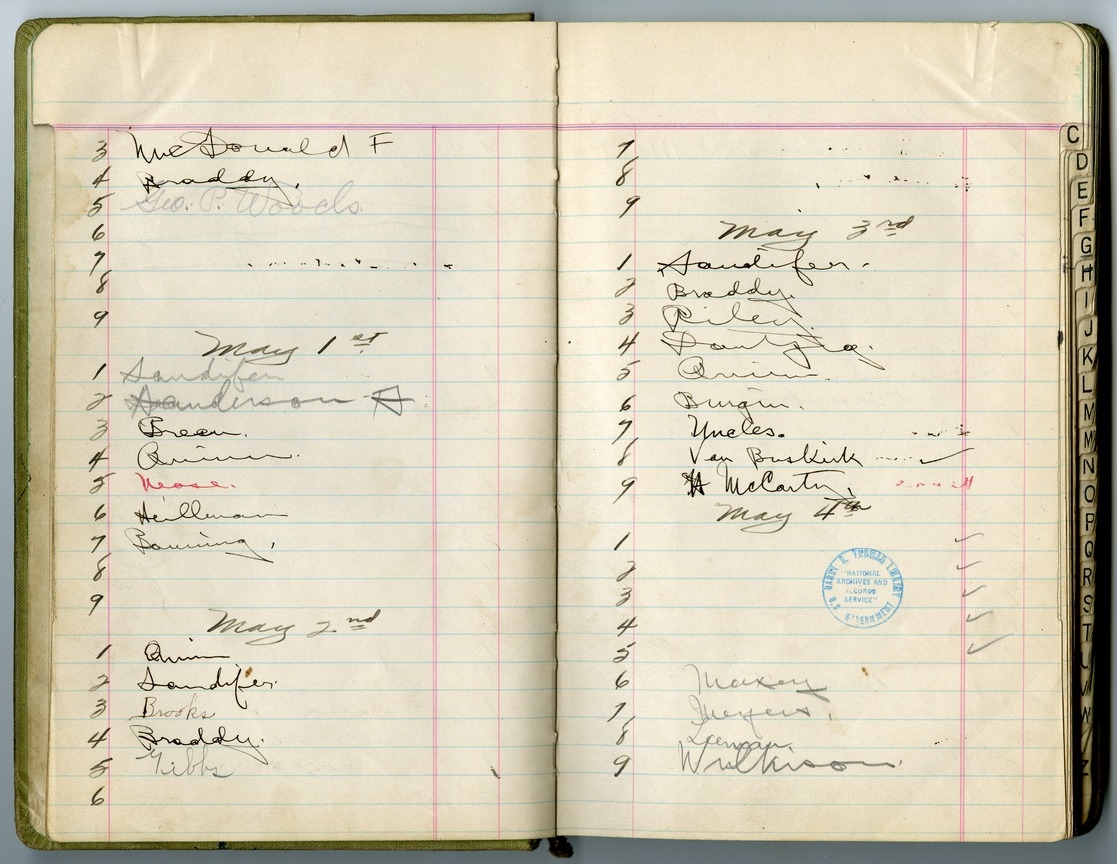 3 McDonald F
4 Braddy.
5 Geo. P. Woods
6
7
8
9
May 1st
1 Sandifer
2 Sanderson
3 Breen.
4 Quinn.
5
6 Heillman
7
8
9
May 2nd
1 Quinn
2 Sandifer.
3 Brooks
4 Braddy.
5 Gibbs
6
7
8
9
May 3rd
1 Sandifer.
2 Braddy.
3 Riley.
4
5 Quinn
6 Burgin.
7 Yncles.
8 Van Buskirk ✓
9 H McCarty.
May 4th
1 ✓
2 ✓
3 ✓
4 ✓
5 ✓
6 Maxey
7 Meyers.
8
9 Wilkinson.
HARRY S. TRUMAN LIBRARY
"NATIONAL
ARCHIVES AND
RECORDS
SERVICE"
U.S. GOVERNMENT
C
D
E
F
G
H
I
J
K
L
M
Mc
N
O
P
Q
R
S
T
U
V
W
Y
Z